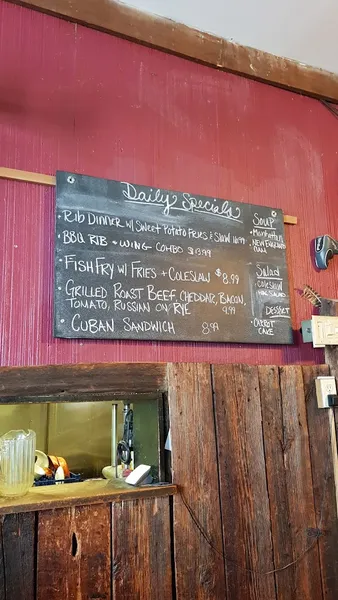 Daily Specials
• Rib Dinner w/ Sweet Potato Fries & Slaw
• BBQ Rib + Wing Combo $13.99
• Fish Fry w/ Fries + Coleslaw $8.99
• Grilled Roast Beef, Cheddar, Bacon,
Tomato, Russian on Rye 9.99
Cuban Sandwich 8.99
Soup
• Manhattan
New England
Clam
Salad
• Coleslaw
Salad
Dessert
• Carrot
Cake